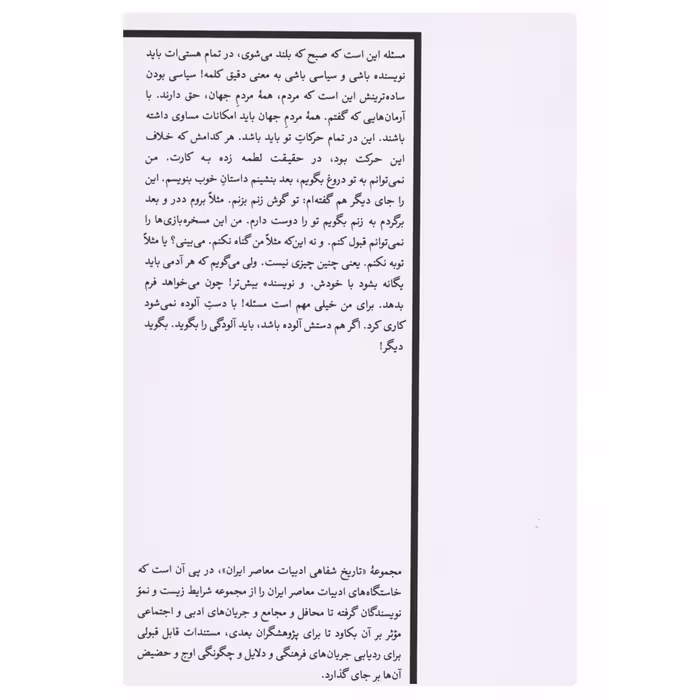 مسئله این است که صبح که بلند می‌شوی، در تمام هستی‌ات باید
نویسنده باشی و سیاسی باشی به معنی دقیق کلمه! سیاسی بودن
ساده‌ترینش این است که مردم، همهٔ مردمِ جهان، حق دارند. با
آرمان‌هایی که گفتم. همهٔ مردم جهان باید امکانات مساوی داشته
باشند. این در تمام حرکاتِ تو باید باشد. هر کدامش که خلاف
این حرکت بود، در حقیقت لطمه زده به کارت. من
نمی‌توانم به تو دروغ بگویم، بعد بنشینم داستانِ خوب بنویسم. این
را جای دیگر هم گفته‌ام: تو گوش زنم بزنم. مثلاً بروم ددر و بعد
برگردم به زنم بگویم تو را دوست دارم. من این مسخره‌بازی‌ها را
نمی‌توانم قبول کنم. و نه این‌که مثلاً من گناه نکنم. می‌بینی؟ یا مثلاً
توبه نکنم. یعنی چنین چیزی نیست. ولی می‌گویم که هر آدمی باید
یگانه بشود با خودش. و نویسنده بیش‌تر! چون می‌خواهد فرم
بدهد. برای من خیلی مهم است مسئله! با دستِ آلوده نمی‌شود
کاری کرد. اگر هم دستش آلوده باشد، باید آلودگی را بگوید. بگوید
دیگر!
مجموعهٔ «تاریخ شفاهی ادبیات معاصر ایران»، در پی آن است که
خاستگاه‌های ادبیات معاصر ایران را از مجموعه شرایط زیست و نموّ
نویسندگان گرفته تا محافل و مجامع و جریان‌های ادبی و اجتماعی
مؤثر بر آن بکاود تا برای پژوهشگران بعدی، مستندات قابل قبولی
برای ردیابی جریان‌های فرهنگی و دلایل و چگونگی اوج و حضیض
آن‌ها بر جای گذارد.